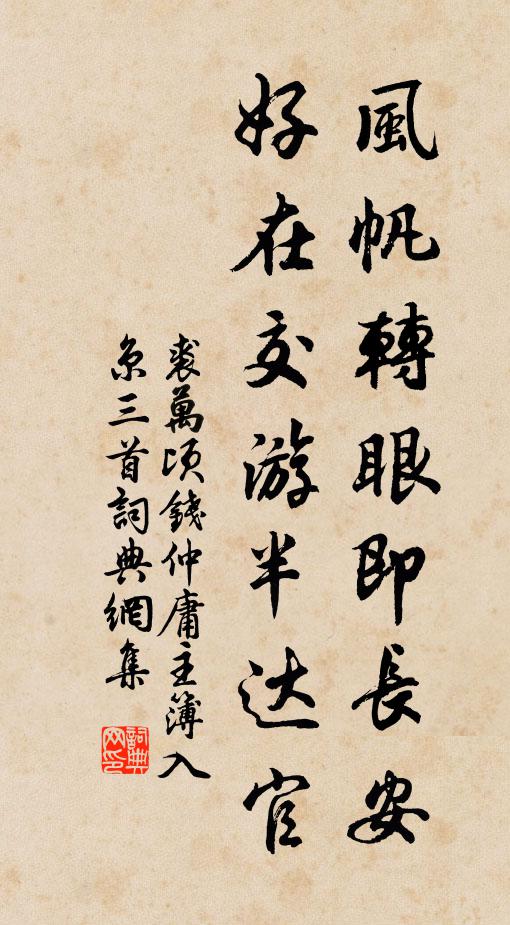 風帆轉眼即長安
好在交游半达官
裘萬頃錢仲庸主簿入
京三首詞典網集
詞典网印